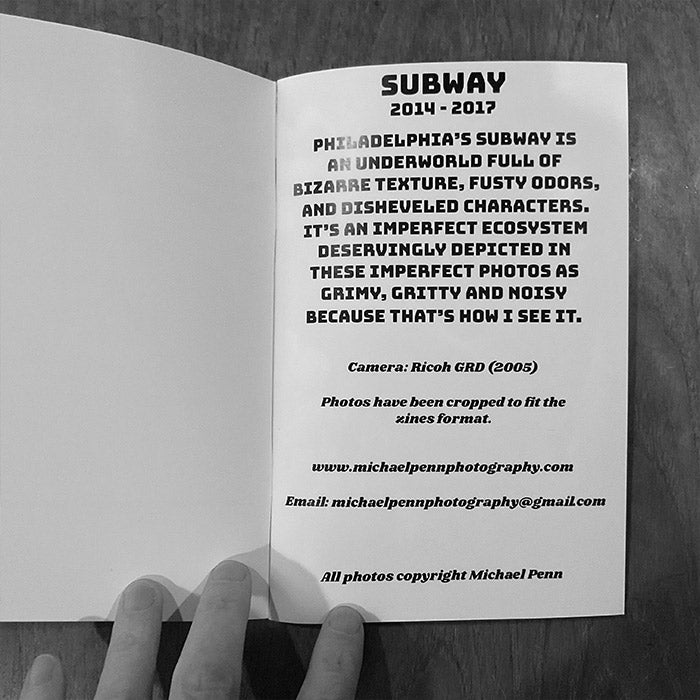 SUBWAY
2014 - 2017
PHILADELPHIA'S SUBWAY IS
AN UNDERWORLD FULL OF
BIZARRE TEXTURE, FUSTY ODORS,
AND DISHEVELED CHARACTERS.
IT'S AN IMPERFECT ECOSYSTEM
DESERVINGLY DEPICTED IN
THESE IMPERFECT PHOTOS AS
GRIMY, GRITTY AND NOISY
BECAUSE THAT'S HOW I SEE IT.
Camera: Ricoh GRD (2005)
Photos have been cropped to fit the
zines format.
www.michaelpennphotography.com
Email: michaelpennphotography@gmail.com
All photos copyright Michael Penn